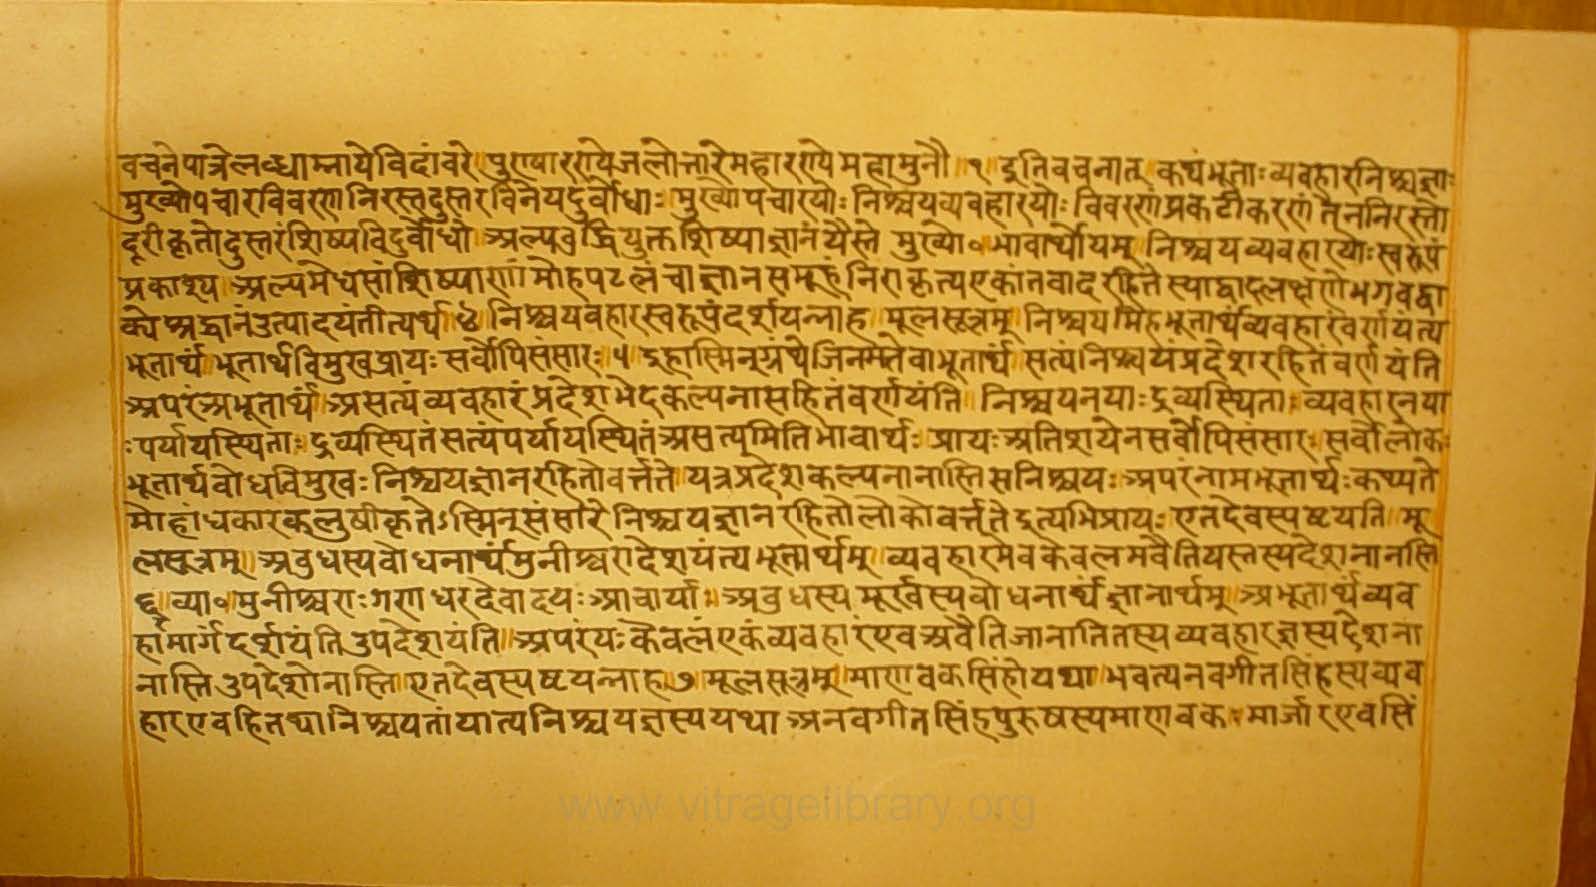 वचनेपात्रेलब्धाम्नायेविदांवरे पुराषाररायेजलोत्तारेमहारराये महामुनौ ॥१ इतिवचनात् कथंभूताः व्यवहारनिश्चयज्ञाः
मुख्योपचारविवरणनिरस्तदुस्तरविनेयदुर्बोधाः मुख्योपचारयोः निश्चयव्यवहारयोः विवरणंप्रकटीकरणं तेननिरस्तो
दूरीकृतोदुस्तरंशिष्यविदुर्बोधो अल्पबुद्धियुक्तशिष्याज्ञानंयैस्ते मुख्यो॰ भावार्थोयम् निश्चयव्यवहारयोः स्वरूपं
प्रकाश्य अल्पमेधसांशिष्याणां मोहपटलंचाज्ञानसमूहंनिराकृत्यएकांतवादरहितेस्याद्वादलक्षणेभगवद्वा
क्येश्रद्धानंउत्पादयंतीत्यर्थ ४ निश्चयवहारस्वरूपंदर्शयन्नाह मूलसूत्रम् निश्चयमिहभूतार्थंव्यवहारंवर्णयंत्य
भूतार्थं भूतार्थविमुखप्रायः सर्वोपिसंसारः ५ इहास्मिन्ग्रंथेजिनमतेवाभूतार्थं सत्यंनिश्चयंप्रदेशरहितंवर्णयंति
अपरंअभूतार्थं असत्यंव्यवहारंप्रदेशभेदकल्पनासहितंवर्णयंति निश्चयनयाः द्रव्यस्थिता व्यवहारनया
ःपर्यायस्थिताः द्रव्यस्थितंसत्यंपर्यायस्थितंअसत्यमितिभावार्थः प्रायः अतिशयेनसर्वोपिसंसारः सर्वोलोकः
भूतार्थबोधविमुखः निश्चयज्ञानरहितोवर्त्तते यत्रप्रदेशकल्पनानास्तिसनिश्चयः अपरंनामभूतार्थः कथ्यते
मोहांधकारकलुषीकृतेऽस्मिन्संसारे निश्चयज्ञानरहितोलोकोवर्त्ततेइत्यभिप्रायः एतदेवस्पष्टयति मू
लसूत्रम् अबुधस्यबोधनार्थंमुनीश्वरादेशयंत्यभूतार्थम् व्यवहारमेवकेवलमवैतियस्तस्यदेशनानास्ति
६ व्या॰ मुनीश्वराः गणधरदेवादयः आचार्या अबुधस्य मूर्खस्यबोधनार्थं ज्ञानार्थम् अभूतार्थंव्यव
हामार्गं दर्शयंति उपदेशयंति अपरंयः केवलंएकंव्यवहारंएव अवैतिजानातितस्यव्यवहारज्ञस्यदेशना
नास्ति उपदेशोनास्ति एतदेवस्पष्टयन्नाह ७ मूलसूत्रम् माणवकसिंहोयथा भवत्यनवगीतसिंहस्यव्यव
हारएवहितथानिश्चयतांयात्यनिश्चयज्ञस्य यथा अनवगीतसिंहपुरुषस्यमाणवकः मार्जारएवसिं
www.vitragelibrary.org